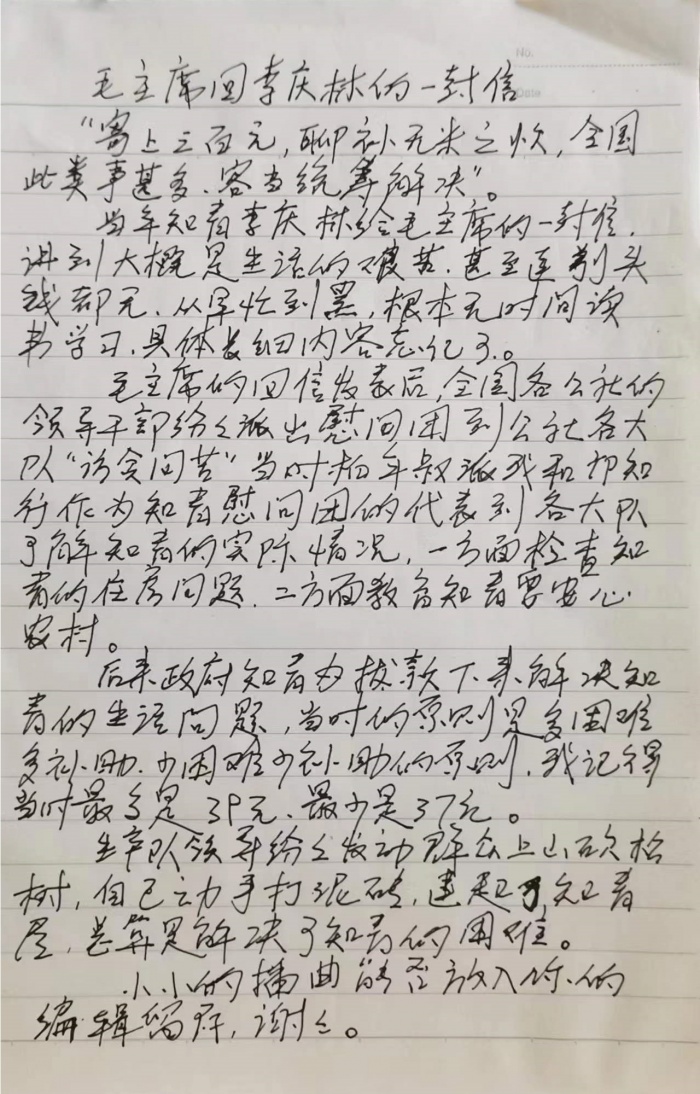 No.
Date
毛主席回李庆林的一封信
"寄上三百元,聊补无米之炊,全国
此类事甚多、容当统筹解决"。
当年知青李庆林给毛主席的一封信,
讲到大概是生活的艰苦.甚至连剃头
钱都无.从早忙到黑,根本无时间读
书学习.具体长细内容忘记了。
毛主席的回信发表后,全国各公社的
领导干部纷々派出慰问团到公社各大
队"访贫问苦"当时柏年叔派我和邝知
行作为知青慰问团的代表到各大队
了解知青的实际情况,一方面检查知
青的住房问题.二方面教育知青要安心
农村。
后来政府知青办拔款下来解决知
青的生活问题,当时的原则是多困难
多补助.少困难少补助的原则.我记得
当时最多是39元.最少是37元。
生产队领导纷々发动群众上山砍松
树,自己动手打泥砖,建起了知青
屋,总算是解决了知青的困难。
小小的插曲能否放入你的
编辑留存,谢々。